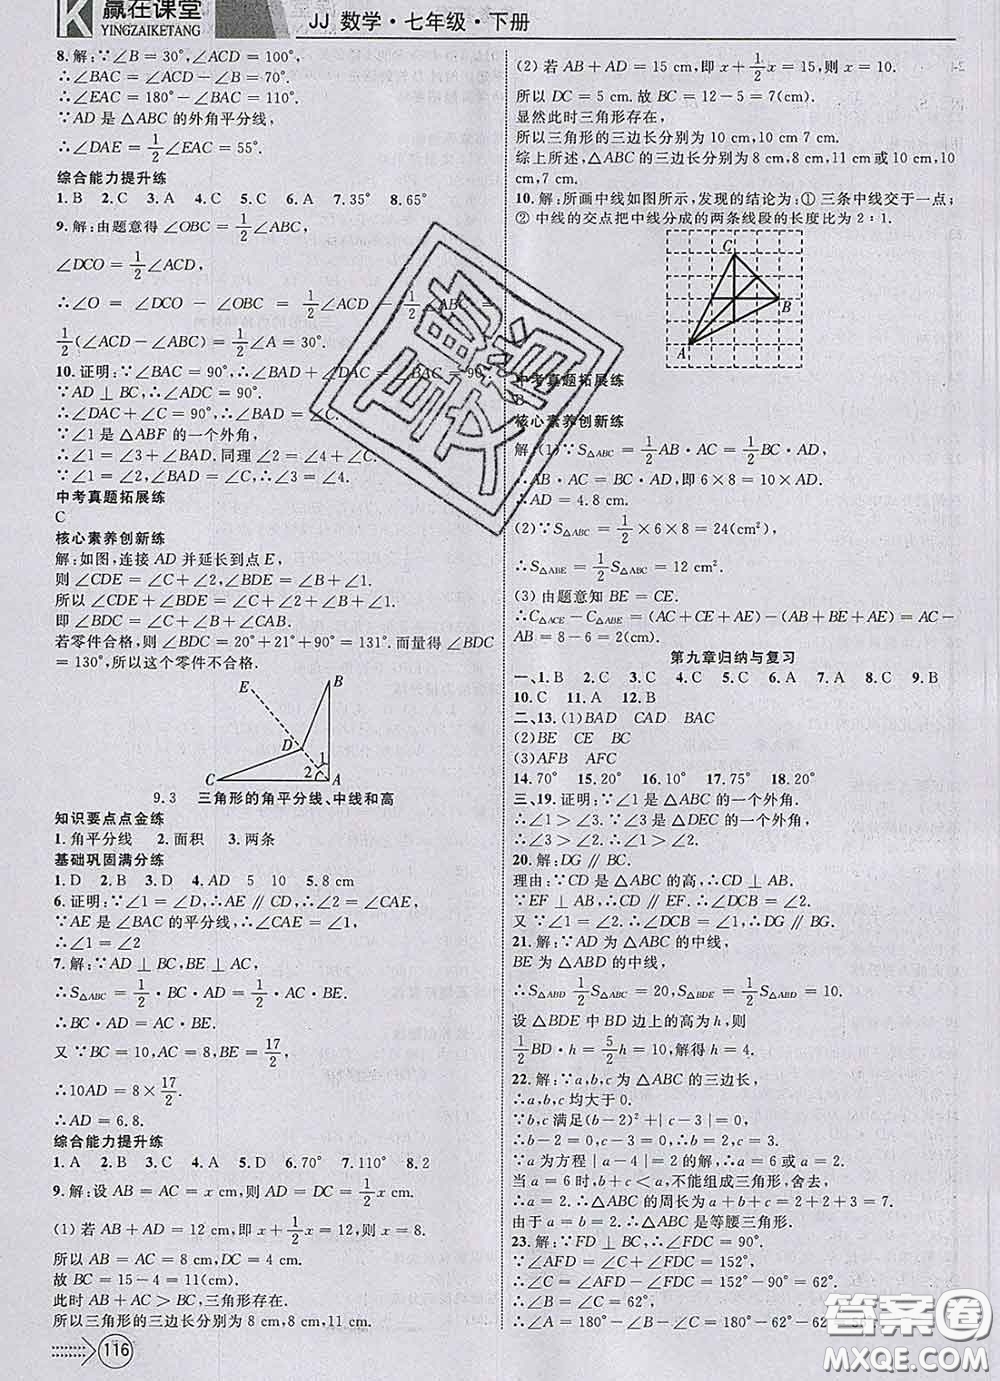 K 赢在课堂
YINGZAIKETANG
JJ 数学·七年级·下册
8.解:∵∠B=30°,∠ACD=100°,
∴∠BAC=∠ACD-∠B=70°.
∴∠EAC=180°-∠BAC=110°.
∵AD是△ABC的外角平分线,
∴∠DAE=1/2∠EAC=55°.
综合能力提升练
1.B 2.C 3.A 4.C 5.C 6.A 7.35° 8.65°
9.解:由题意得∠OBC=1/2∠ABC,
∠DCO=1/2∠ACD,
∴∠O=∠DCO-∠OBC=1/2∠ACD-1/2∠ABC=
1/2(∠ACD-∠ABC)=1/2∠A=30°.
10.证明:∵∠BAC=90°,∴∠DAC+∠BAD=∠BAC=90°.
∵AD⊥BC,∴∠ADC=90°.
∴∠DAC+∠C=90°,∴∠BAD=∠C.
∵∠1是△ABF的一个外角,
∴∠1=∠3+∠BAD.同理∠2=∠4+∠C.
又∵∠1=∠2,∠BAD=∠C,∴∠3=∠4.
中考真题拓展练
C
核心素养创新练
解:如图,连接AD并延长到点E,
则∠CDE=∠C+∠2,∠BDE=∠B+∠1.
所以∠CDE+∠BDE=∠C+∠2+∠B+∠1.
即∠BDC=∠C+∠B+∠CAB.
若零件合格,则∠BDC=20°+21°+90°=131°.而量得∠BDC
=130°,所以这个零件不合格.
E B
D 1
2
C A
9.3 三角形的角平分线、中线和高
知识要点点金练
1.角平分线 2.面积 3.两条
基础巩固满分练
1.D 2.B 3.D 4.AD 5 10 5.8 cm
6.证明:∵∠1=∠D,∴AE∥CD,∴∠2=∠CAE.
∵AE是∠BAC的平分线,∴∠CAE=∠1,
∴∠1=∠2
7.解:∵AD⊥BC,BE⊥AC,
∴S△ABC=1/2·BC·AD=1/2·AC·BE.
∴BC·AD=AC·BE.
又∵BC=10,AC=8,BE=17/2,
∴10AD=8×17/2.
∴AD=6.8.
综合能力提升练
1.A 2.B 3.C 4.A 5.D 6.70° 7.110° 8.2
9.解:设AB=AC=x cm,则AD=DC=1/2x cm.
(1)若AB+AD=12 cm,即x+1/2x=12,则x=8.
所以AB=AC=8 cm,DC=4 cm.
故BC=15-4=11(cm).
此时AB+AC>BC,三角形存在.
所以三角形的三边长分别为8 cm,8 cm,11 cm.
116
(2)若AB+AD=15 cm,即x+1/2x=15,则x=10.
所以DC=5 cm.故BC=12-5=7(cm).
显然此时三角形存在,
所以三角形的三边长分别为10 cm,10 cm 7 cm.
综上所述,△ABC的三边长分别为8 cm,8 cm,11 cm或10 cm,10
cm,7 cm.
10.解:所画中线如图所示,发现的结论为:①三条中线交于一点;
②中线的交点把中线分成的两条线段的长度比为2:1.
C
B
A
中考真题拓展练
B
核心素养创新练
解:(1)∵S△ABC=1/2AB·AC=1/2BC·AD,
∴AB·AC=BC·AD,即6×8=10×AD.
∴AD=4.8 cm.
(2)∵S△ABC=1/2×6×8=24(cm²),
∴S△ABE=1/2S△ABC=12 cm².
(3)由题意知BE=CE.
∴C△ACE-C△ABE=(AC+CE+AE)-(AB+BE+AE)=AC-
AB=8-6=2(cm).
第九章归纳与复习
一、1.B 2.C 3.C 4.C 5.C 6.A 7.A 8.C 9.B
10.C 11.A 12.B
二、13.(1)BAD CAD BAC
(2)BE CE BC
(3)AFB AFC
14.70° 15.20° 16.10° 17.75° 18.20°
三、19.证明:∵∠1是△ABC的一个外角.
∴∠1>∠3.∵∠3是△DEC的一个外角.
∴∠3>∠2.∴∠1>∠2.
20.解:DG∥BC.
理由:∵CD是△ABC的高,∴CD⊥AB.
∵EF⊥AB,∴CD∥EF.∴∠DCB=∠2.
又∵∠1=∠2,∴∠DCB=∠1,∴DG∥BG.
21.解:∵AD为△ABC的中线,
BE为△ABD的中线,
∴S△ABD=1/2S△ABC=20,S△BDE=1/2S△ABD=10.
设△BDE中BD边上的高为h,则
1/2BD·h=5/2h=10,解得h=4.
22.解:∵a,b,c为△ABC的三边长,
∴a,b,c均大于0.
∵b,c满足(b-2)²+|c-3|=0,
∴b-2=0,c-3=0,∴b=2,c=3.
∵a为方程|a-4|=2的解,∴a=6或a=2.
当a=6时,b+c<a,不能组成三角形,舍去,
∴a=2.∴△ABC的周长为a+b+c=2+2+3=7.
由于a=b=2.∴△ABC是等腰三角形.
23.解:∵FD⊥BC,∴∠FDC=90°.
∵∠AFD=∠C+∠FDC=152°,
∴∠C=∠AFD-∠FDC=152°-90°=62°.
∴∠B=∠C=62°.
∴∠A=180°-∠B-∠C=180°-62°-62°=56°.
答案圈
MXQE.COM